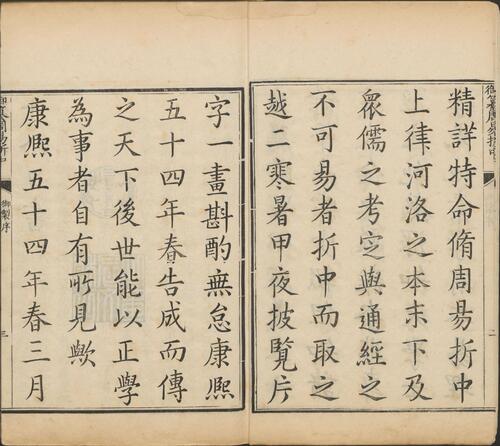 御纂周易折中
二
精詳特命脩周易折中
上律河洛之本末下及
衆儒之考定與通經之
不可易者折中而取之
越二寒暑甲夜披覽片
字一畫斟酌無怠康熙
五十四年春告成而傳
之天下後世能以正學
為事者自有所見歟
康熙五十四年春三月
御製序
三